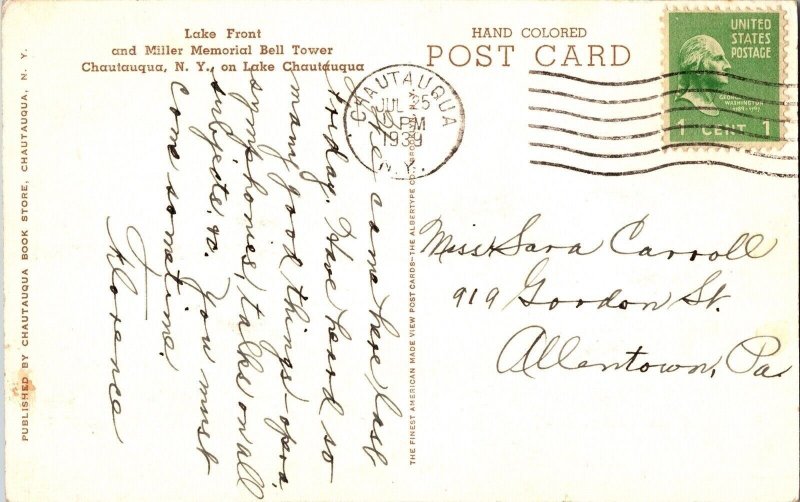 Lake Front
and Miller Memorial Bell Tower
Chautauqua, N. Y., on Lake Chautauqua
HAND COLORED
POST CARD
UNITED
STATES
POSTAGE
GEORGE
WASHINGTON
1789-1797
1 CENT 1
CHAUTAUQUA
JUL 25
PM
1939
N.Y.
We came here last
Friday. Have heard so
many good things - opera,
symphonies, talks on all
subjects. You must
come sometime.
Florence
Miss Sara Carroll
919 Gordon St.
Allentown, Pa
PUBLISHED BY CHAUTAUQUA BOOK STORE, CHAUTAUQUA, N. Y.
THE FINEST AMERICAN MADE VIEW POST CARDS—THE ALBERTYPE CO., BROOKLYN